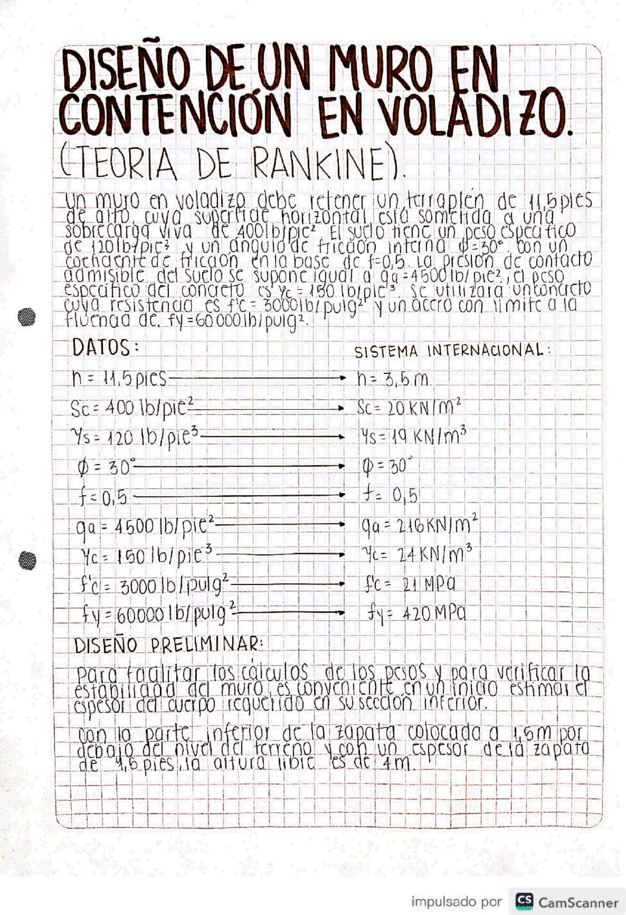 DISEÑO DE UN MURO EN
CONTENCIÓN EN VOLADIZO.
(TEORIA DE RANKINE).
Un muro en voladizo debe retener un terraplén de 11,5 pies
de alto, cuya superficie horizontal está sometida a una
sobrecarga viva de 400 lb/pie². El suelo tiene un peso específico
de 120 lb/pie³ y un ángulo de fricción interna φ=30° con un
coeficiente de fricción en la base de f=0,5. La presión de contacto
admisible del suelo se supone igual a qa=4500 lb/pie², el peso
específico del concreto es γc=150 lb/pie³. Se utilizará un concreto
cuya resistencia es f'c=3000 lb/pulg² y un acero con límite a la
fluencia de fy=60000 lb/pulg².
DATOS:
SISTEMA INTERNACIONAL:
h= 11.5 pies → h= 3,5 m
Sc= 400 lb/pie² → Sc= 20 KN/m²
γs= 120 lb/pie³ → γs= 19 KN/m³
φ= 30° → φ= 30°
f= 0,5 → f= 0,5
qa= 4500 lb/pie² → qa= 216 KN/m²
γc= 150 lb/pie³ → γc= 24 KN/m³
f'c= 3000 lb/pulg² → f'c= 21 MPa
fy= 60000 lb/pulg² → fy= 420 MPa
DISEÑO PRELIMINAR:
Para facilitar los cálculos de los pesos y para verificar la
estabilidad del muro, es conveniente en un inicio estimar el
espesor del cuerpo requerido en su sección inferior.
Con la parte inferior de la zapata colocada a 1,5m por
debajo del nivel del terreno y con un espesor de la zapata
de 1,5 pies, la altura libre es de 4m.
impulsado por CS CamScanner